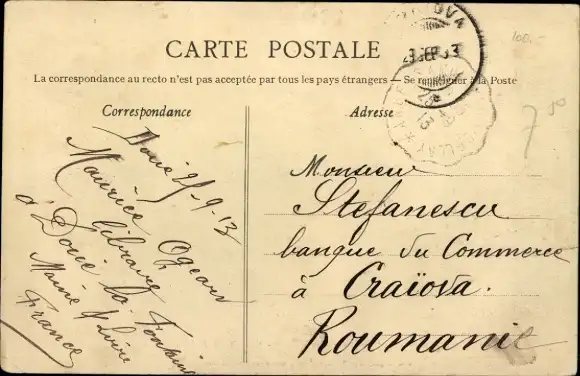 CARTE POSTALE
La correspondance au recto n'est pas acceptée par tous les pays étrangers — Se renseigner à la Poste
Correspondance
Adresse
Doué 25-9-13
Maurice Ogeard
libraire
à Doué la Fontaine
Maine & Loire
France
Monsieur
Stefanescu
banque du Commerce
à Craïova.
Roumanie
100.-
7 50